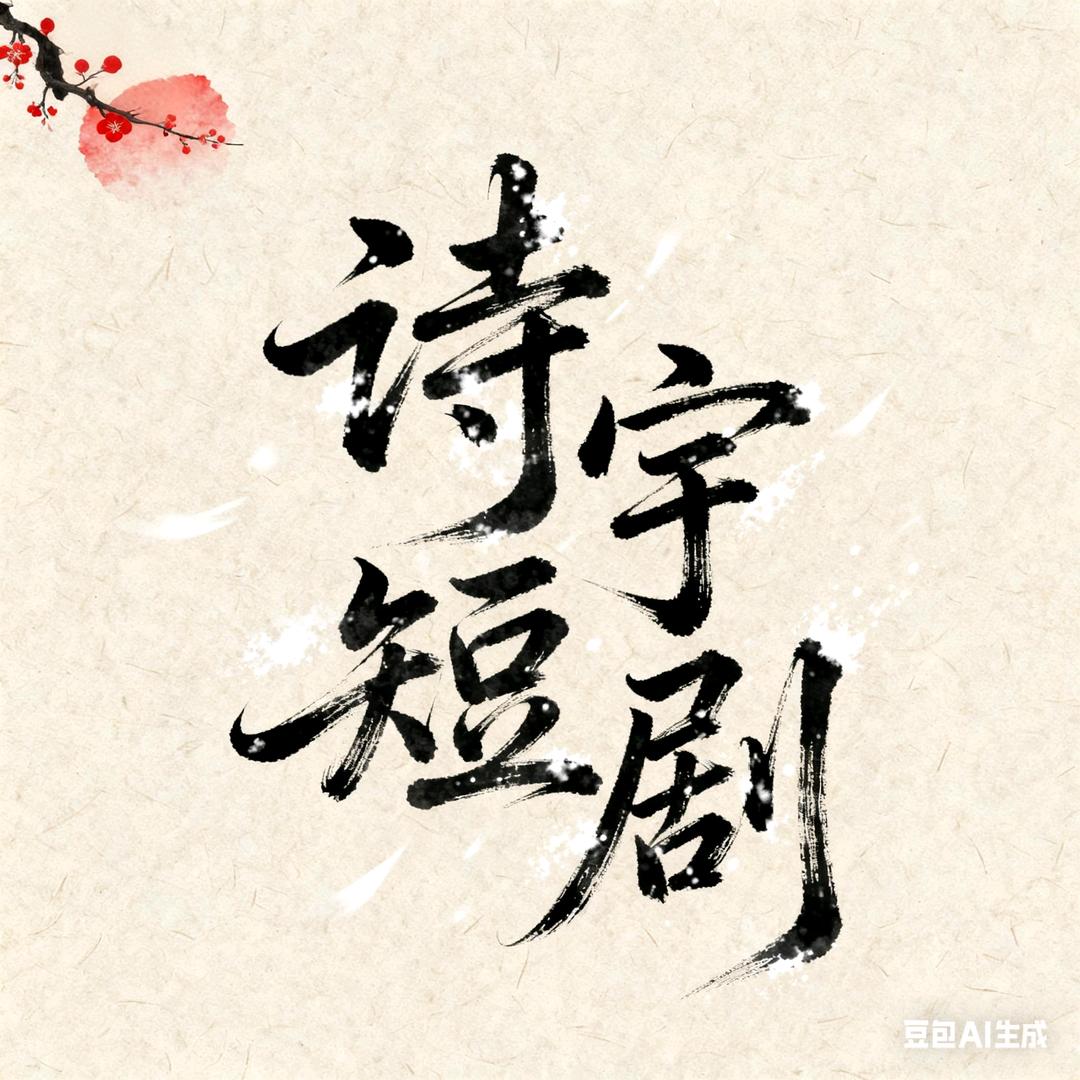 诗宇
短剧
豆包AI生成